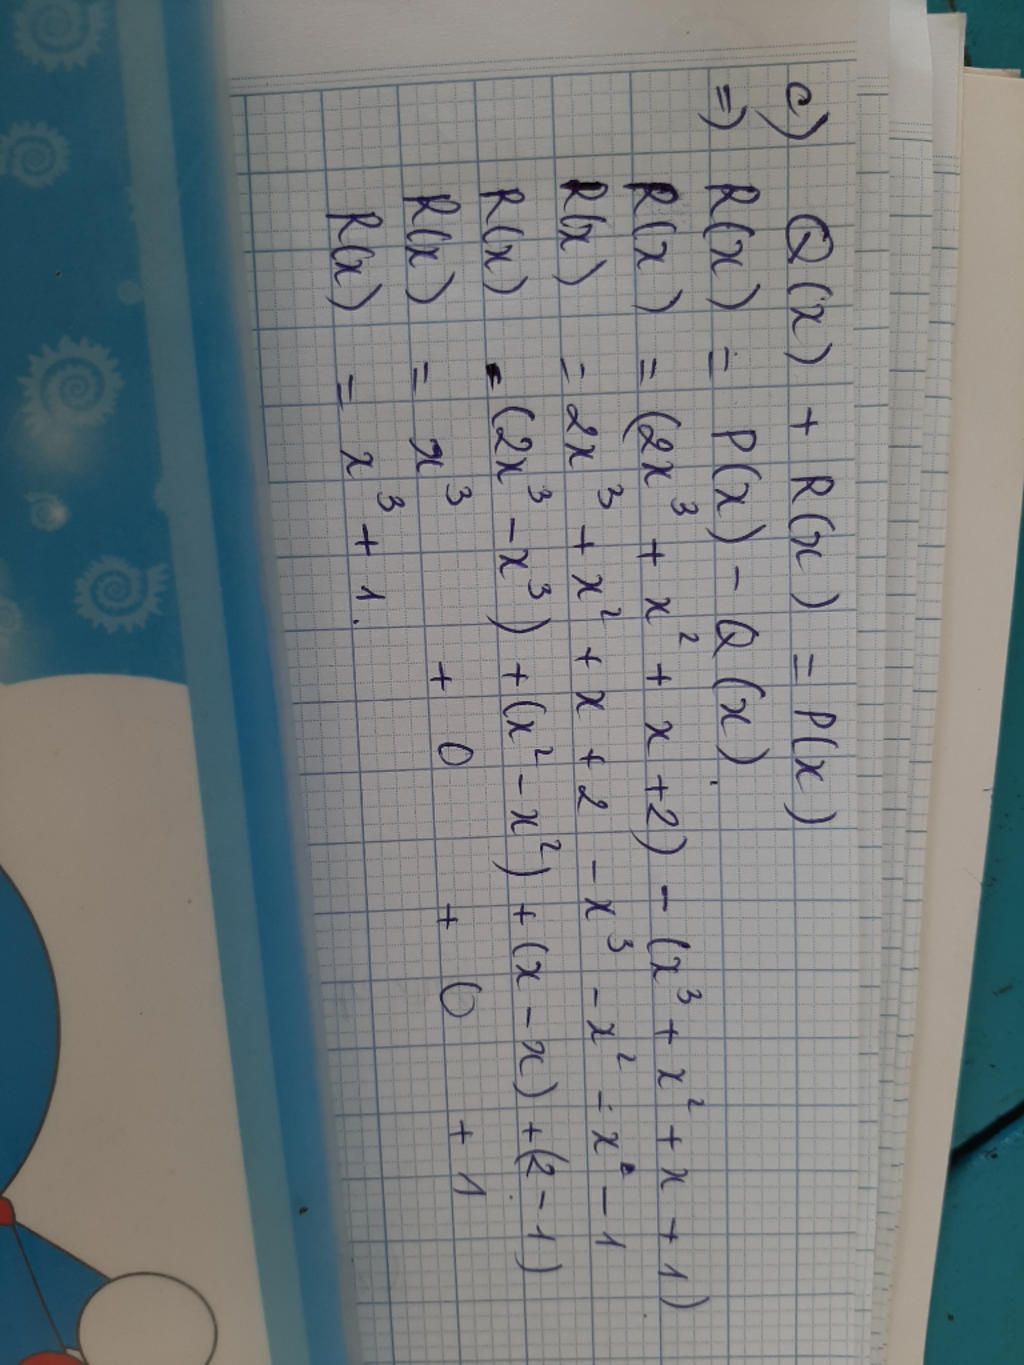 c) Q(x) + R(x) = P(x)
=) R(x) = P(x) - Q(x).
R(x) = (2x³ + x² + x + 2) - (x³ + x² + x + 1)
R(x) = 2x³ + x² + x + 2 - x³ - x² - x - 1
R(x) = (2x³ - x³) + (x² - x²) + (x - x) + (2 - 1)
R(x) = x³ + 0 + 0 + 1
R(x) = x³ + 1.